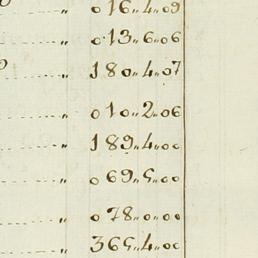 016„4„09
„ 013„6„06
„ 180„4„07
„ 010„2„06
„ 189„4„00
„ 069„5„00
„ 078„0„00
„ 365„4„00